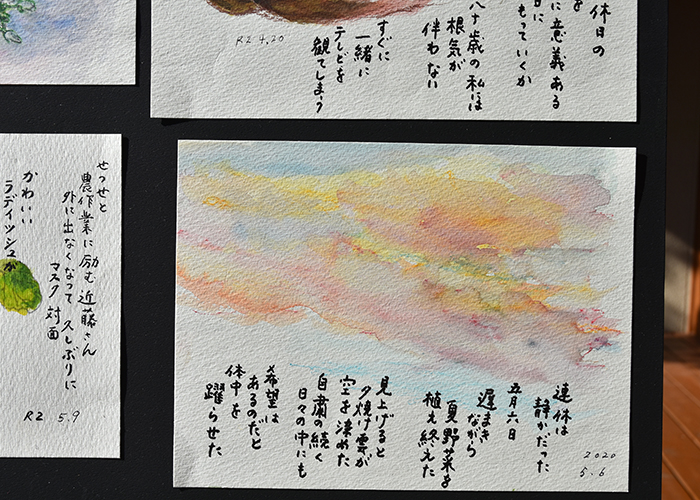 休日の
に意義ある
もっていくか
八十歳の私は
根気が
伴わない
すぐに
一緒に
テレビを
観てしまう
R2 4.20
せっせと
農作業に励む近藤さん
外に出なくなって久しぶりに
マスク対面
かわいい
ラディッシュが
R2 5.9
連休は
静かだった
五月六日
遅まき
ながら
夏野菜を
植え終えた
見上げると
夕焼け雲が
空を染めた
自粛の続く
日々の中にも
希望は
あるのだと
体中を
躍らせた
2020
5.6